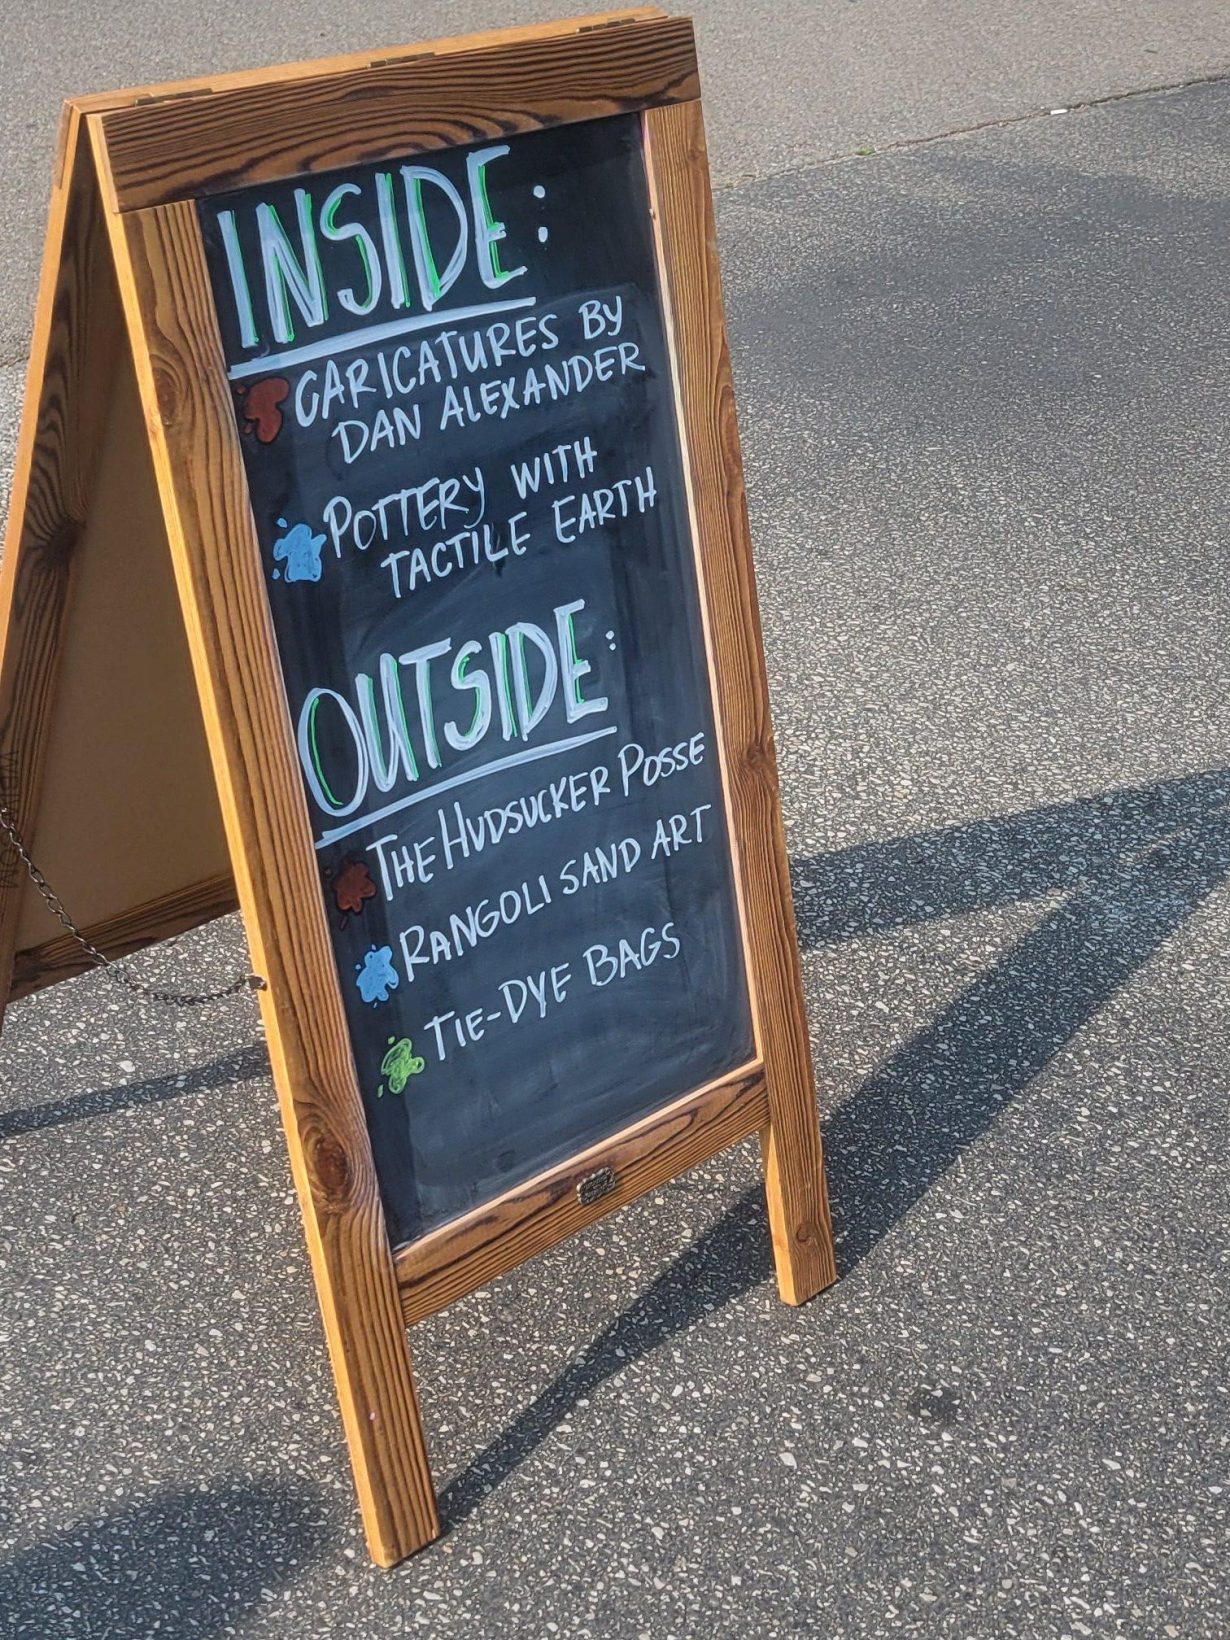 INSIDE:
CARICATURES BY
DAN ALEXANDER
POTTERY WITH
TACTILE EARTH
OUTSIDE:
THE HUDSUCKER POSSE
RANGOLI SAND ART
TIE-DYE BAGS